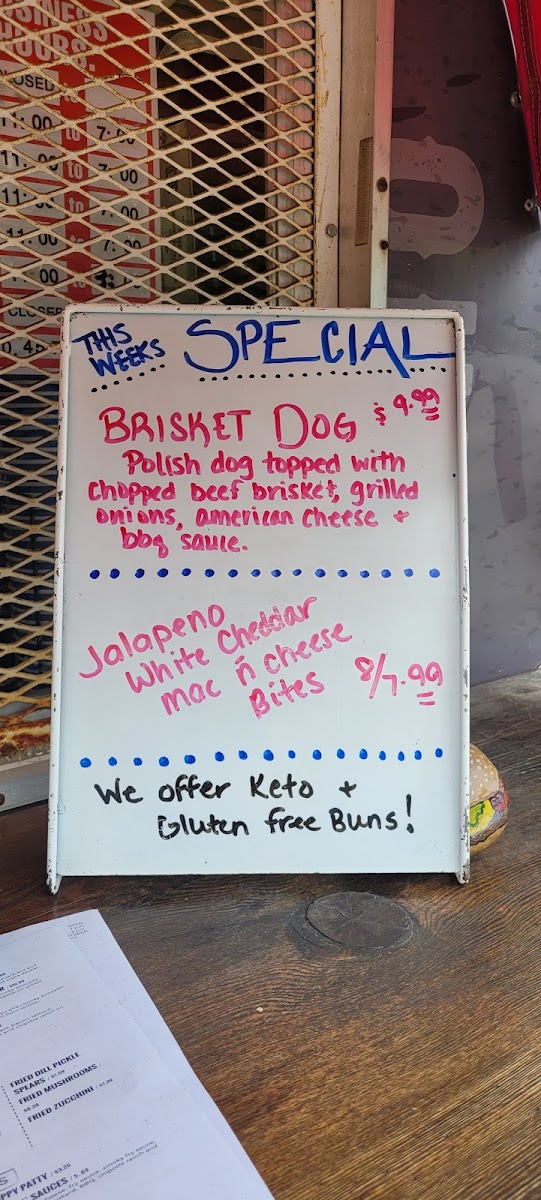 HOURS.
CLOSED to
11:00 to 7:00
11:00 to 7:00
11:00 to 7:00
11:00 to 7:00
THIS
WEEKS
SPECIAL
BRISKET DOG $9.99
Polish dog topped with
chopped beef brisket, grilled
onions, american cheese +
bbq sauce.
Jalapeno
White Cheddar
mac ñ cheese
Bites 8/7.99
We offer Keto +
Gluten free Buns!
FRIED DILL PICKLE
SPEARS
FRIED MUSHROOMS
FRIED ZUCCHINI
PPY PATTY / $3.25
SAUCES / $.69